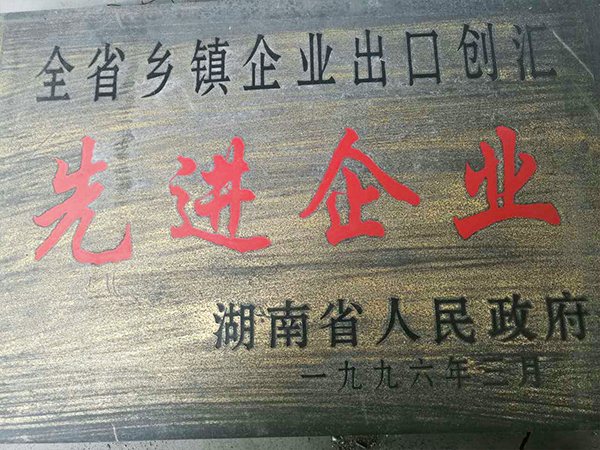 全省乡镇企业出口创汇
先进企业
湖南省人民政府
一九九六年二月